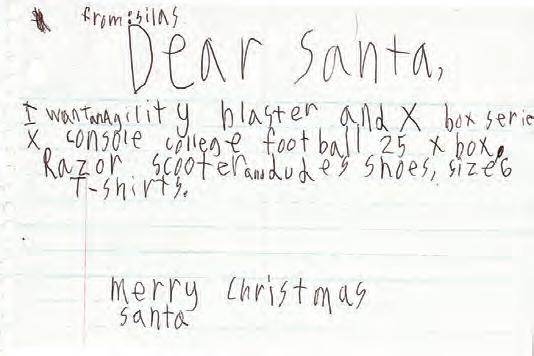 from: silas
Dear Santa,
I want an Agility blaster and X box serie
X console college football 25 x box.
Razor scooter and dudes shoes, size 6
T-shirts.
merry christmas
santa